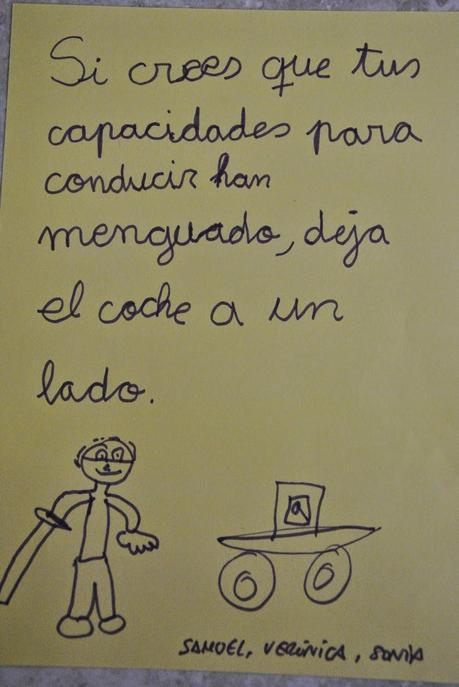 Si crees que tus
capacidades para
conducir han
menguado, deja
el coche a un
lado.
a
SAMUEL, VERÓNICA, SONIA